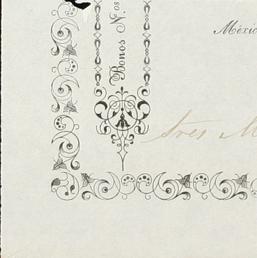 Bonos Nos.
Méxic
tres M